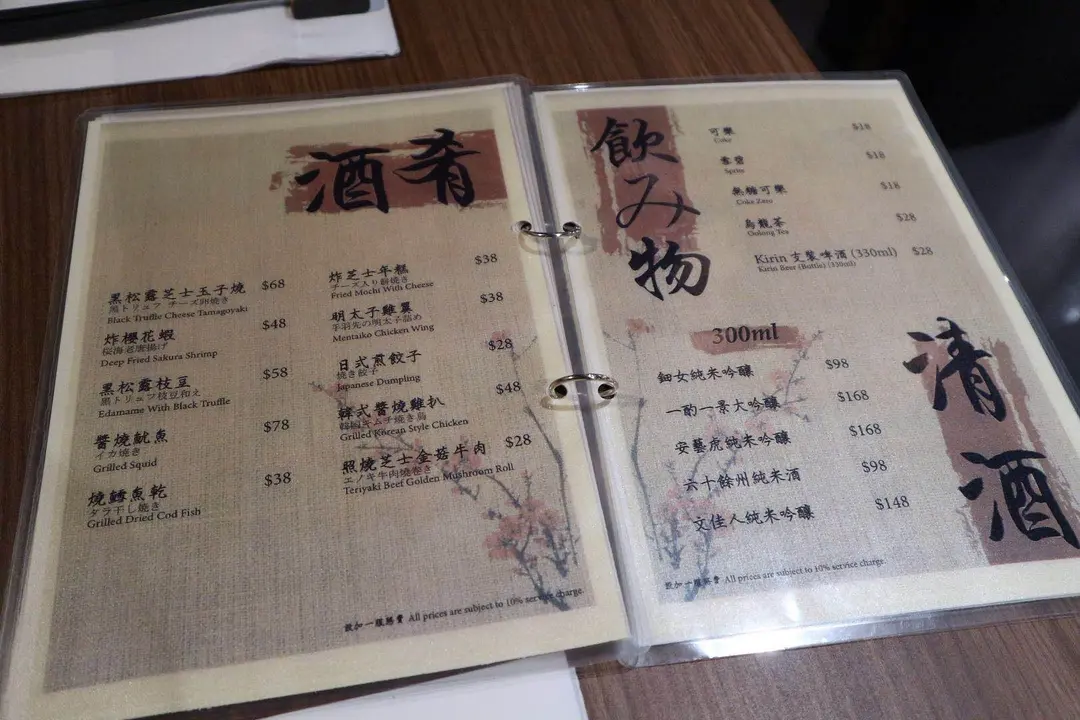 酒肴
黑松露芝士玉子燒 $68
黒トリュフ チーズ卵焼き
Black Truffle Cheese Tamagoyaki
炸櫻花蝦 $48
桜海老唐揚げ
Deep Fried Sakura Shrimp
黑松露枝豆 $58
黒トリュフ枝豆和え
Edamame With Black Truffle
醬燒魷魚 $78
イカ焼き
Grilled Squid
燒鱈魚乾 $38
タラ干し焼き
Grilled Dried Cod Fish
炸芝士年糕 $38
チーズ入り餅焼き
Fried Mochi With Cheese
明太子雞翼 $38
手羽先の明太子詰め
Mentaiko Chicken Wing
日式煎餃子 $28
焼き餃子
Japanese Dumpling
韓式醬燒雞扒 $48
韓国キムチ焼き鳥
Grilled Korean Style Chicken
照燒芝士金菇牛肉 $28
エノキ牛肉焼巻き
Teriyaki Beef Golden Mushroom Roll
設加一服務費 All prices are subject to 10% service charge.
飲み物
可樂 $18
Coke
雪碧 $18
Sprite
無糖可樂 $18
Coke Zero
烏龍茶 $28
Oolong Tea
Kirin 支裝啤酒 (330ml) $28
Kirin Beer (Bottle) (330ml)
清酒
300ml
鈿女純米吟釀 $98
一酌一景大吟釀 $168
安藝虎純米吟釀 $168
六十餘州純米酒 $98
文佳人純米吟釀 $148
設加一服務費 All prices are subject to 10% service charge.